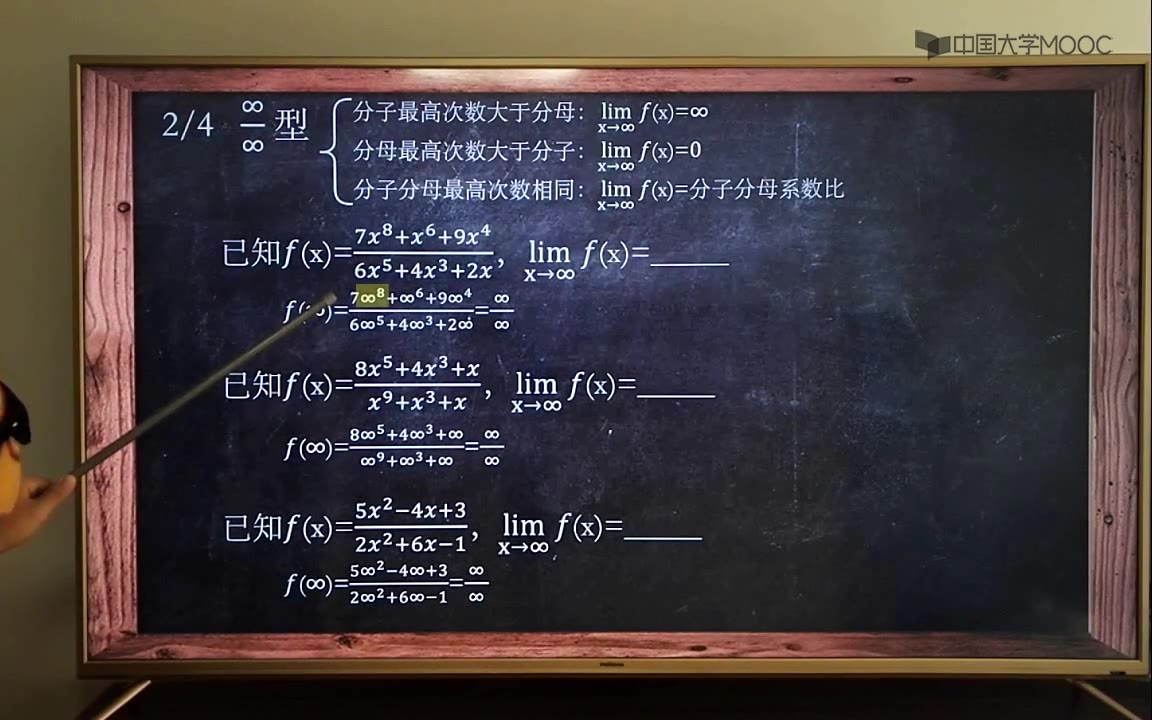 中国大学MOOC
2/4 ∞/∞ 型
分子最高次数大于分母: lim x→∞ f(x)=∞
分母最高次数大于分子: lim x→∞ f(x)=0
分子分母最高次数相同: lim x→∞ f(x)=分子分母系数比
已知f(x)=(7x⁸+x⁶+9x⁴)/(6x⁵+4x³+2x), lim x→∞ f(x)=______
f(∞)=(7∞⁸+∞⁶+9∞⁴)/(6∞⁵+4∞³+2∞)=∞/∞
已知f(x)=(8x⁵+4x³+x)/(x⁹+x³+x), lim x→∞ f(x)=______
f(∞)=(8∞⁵+4∞³+∞)/(∞⁹+∞³+∞)=∞/∞
已知f(x)=(5x²−4x+3)/(2x²+6x−1), lim x→∞ f(x)=______
f(∞)=(5∞²−4∞+3)/(2∞²+6∞−1)=∞/∞